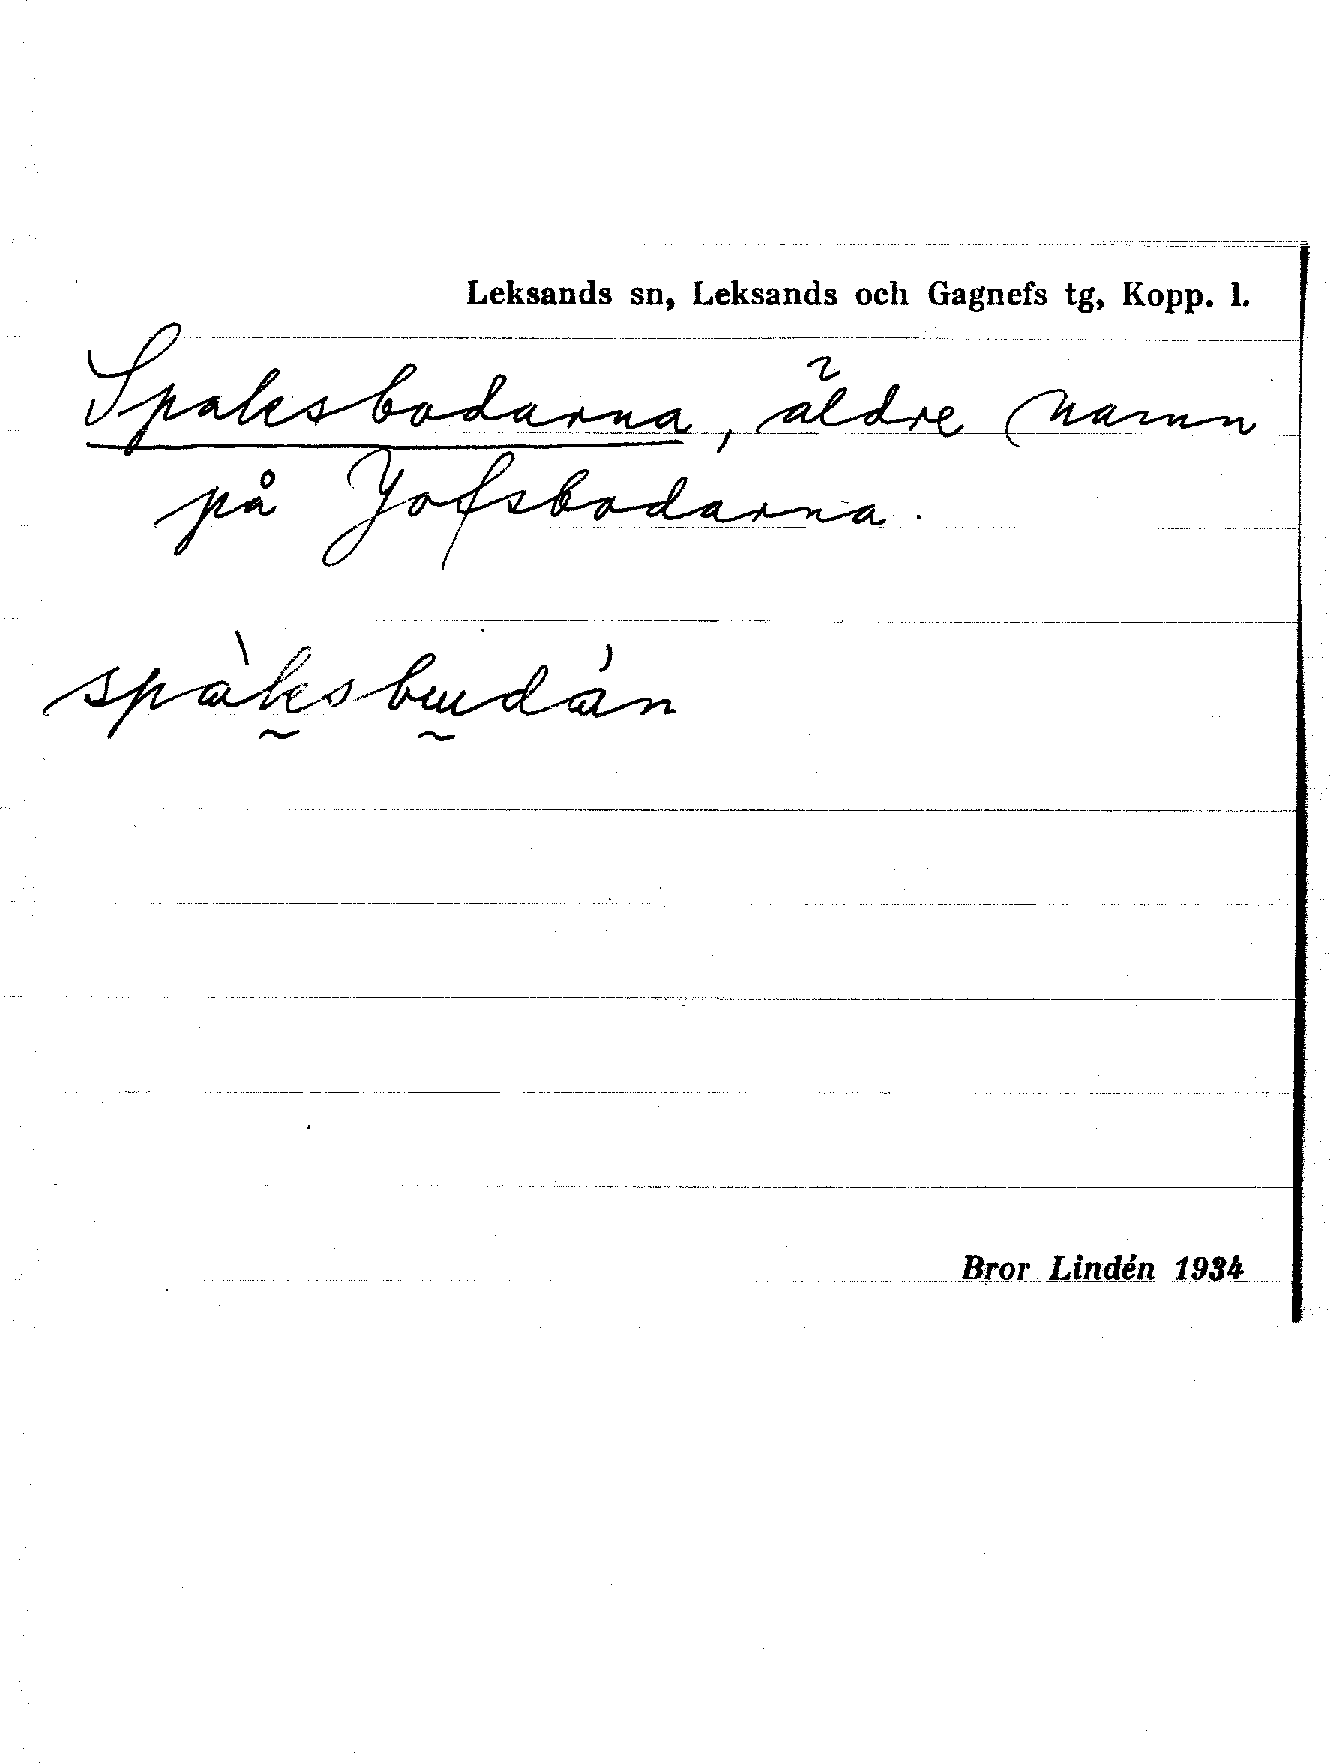 Leksands sn, Leksands och Gagnefs tg, Kopp. l.
Spaksbodarna, äldre namn
på Jofsbodarna.
spàksbudán
Bror Lindén 1934